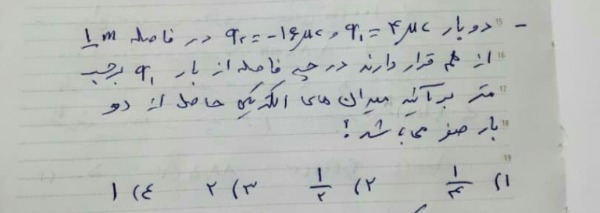 - دو بار q₁ = ۴μc و q₂ = -۱۶μc در فاصله 1m
از هم قرار دارند در چه فاصله از بار q₁ برحسب
متر برآیند میدان های الکتریکی حاصل از دو
بار صفر می باشد!
۱) ۱/۴ ۲) ۱/۲ ۳) ۲ ۴) ۱